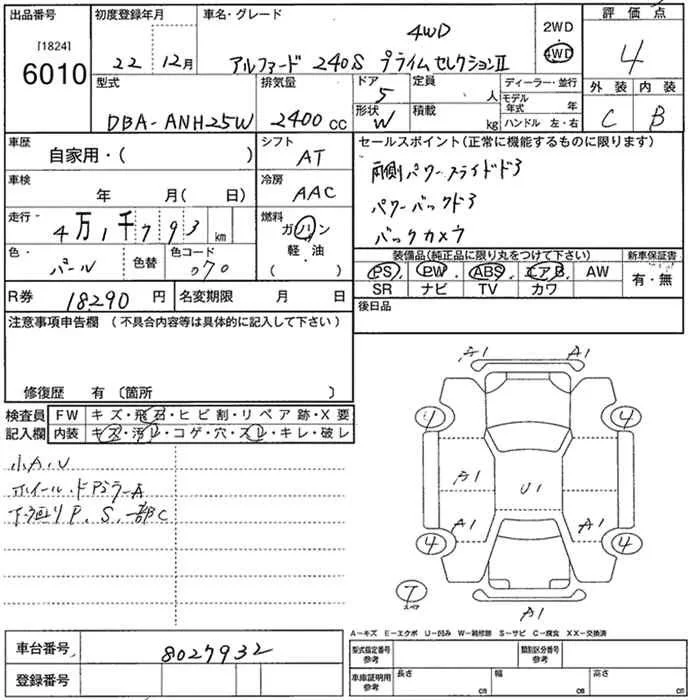 出品番号 [1824] 6010
初度登録年月 22 12月
車名・グレード 4WD
アルファード 240S プライムセレクションⅡ
2WD・4WD
評価点 4
外装 C 内装 B
型式 DBA-ANH25W
排気量 2400 cc
ドア 5
形状 W
定員 人
積載 kg
ディーラー・並行
モデル年式 年
ハンドル 左・右
車歴 自家用・( )
シフト AT
車検 年 月( 日)
冷房 AAC
走行 4万1千793 km
燃料 ガソリン 軽・油 ( )
色・ パール
色替
色コード 070
R券 18290 円
名変期限 月 日
セールスポイント(正常に機能するものに限ります)
両側パワースライドドア
パワーバックドア
バックカメラ
装備品(純正品に限り丸をつけて下さい)
新車保証書
PS PW ABS エアB AW 有・無
SR ナビ TV カワ
後日品
注意事項申告欄 (不具合内容等は具体的に記入して下さい)
修復歴 有 〔箇所 〕
検査員記入欄
FW キズ・飛石・ヒビ割・リペア跡・X要
内装 キズ・汚レ・コゲ・穴・スレ・キレ・破レ
小A、U
ホイール・ドアミラーA
下廻りP、S、一部C
A1 A1
4 4
A1
U1
A1 A1
4 4
T
スペア
A1
A-キズ E-エクボ U-凹み W-補修跡 S-サビ C-腐食 XX-交換済
車台番号 8027932
登録番号
型式指定番号 参考
類別区分番号 参考
車庫証明用 参考
長さ cm 幅 cm 高さ cm